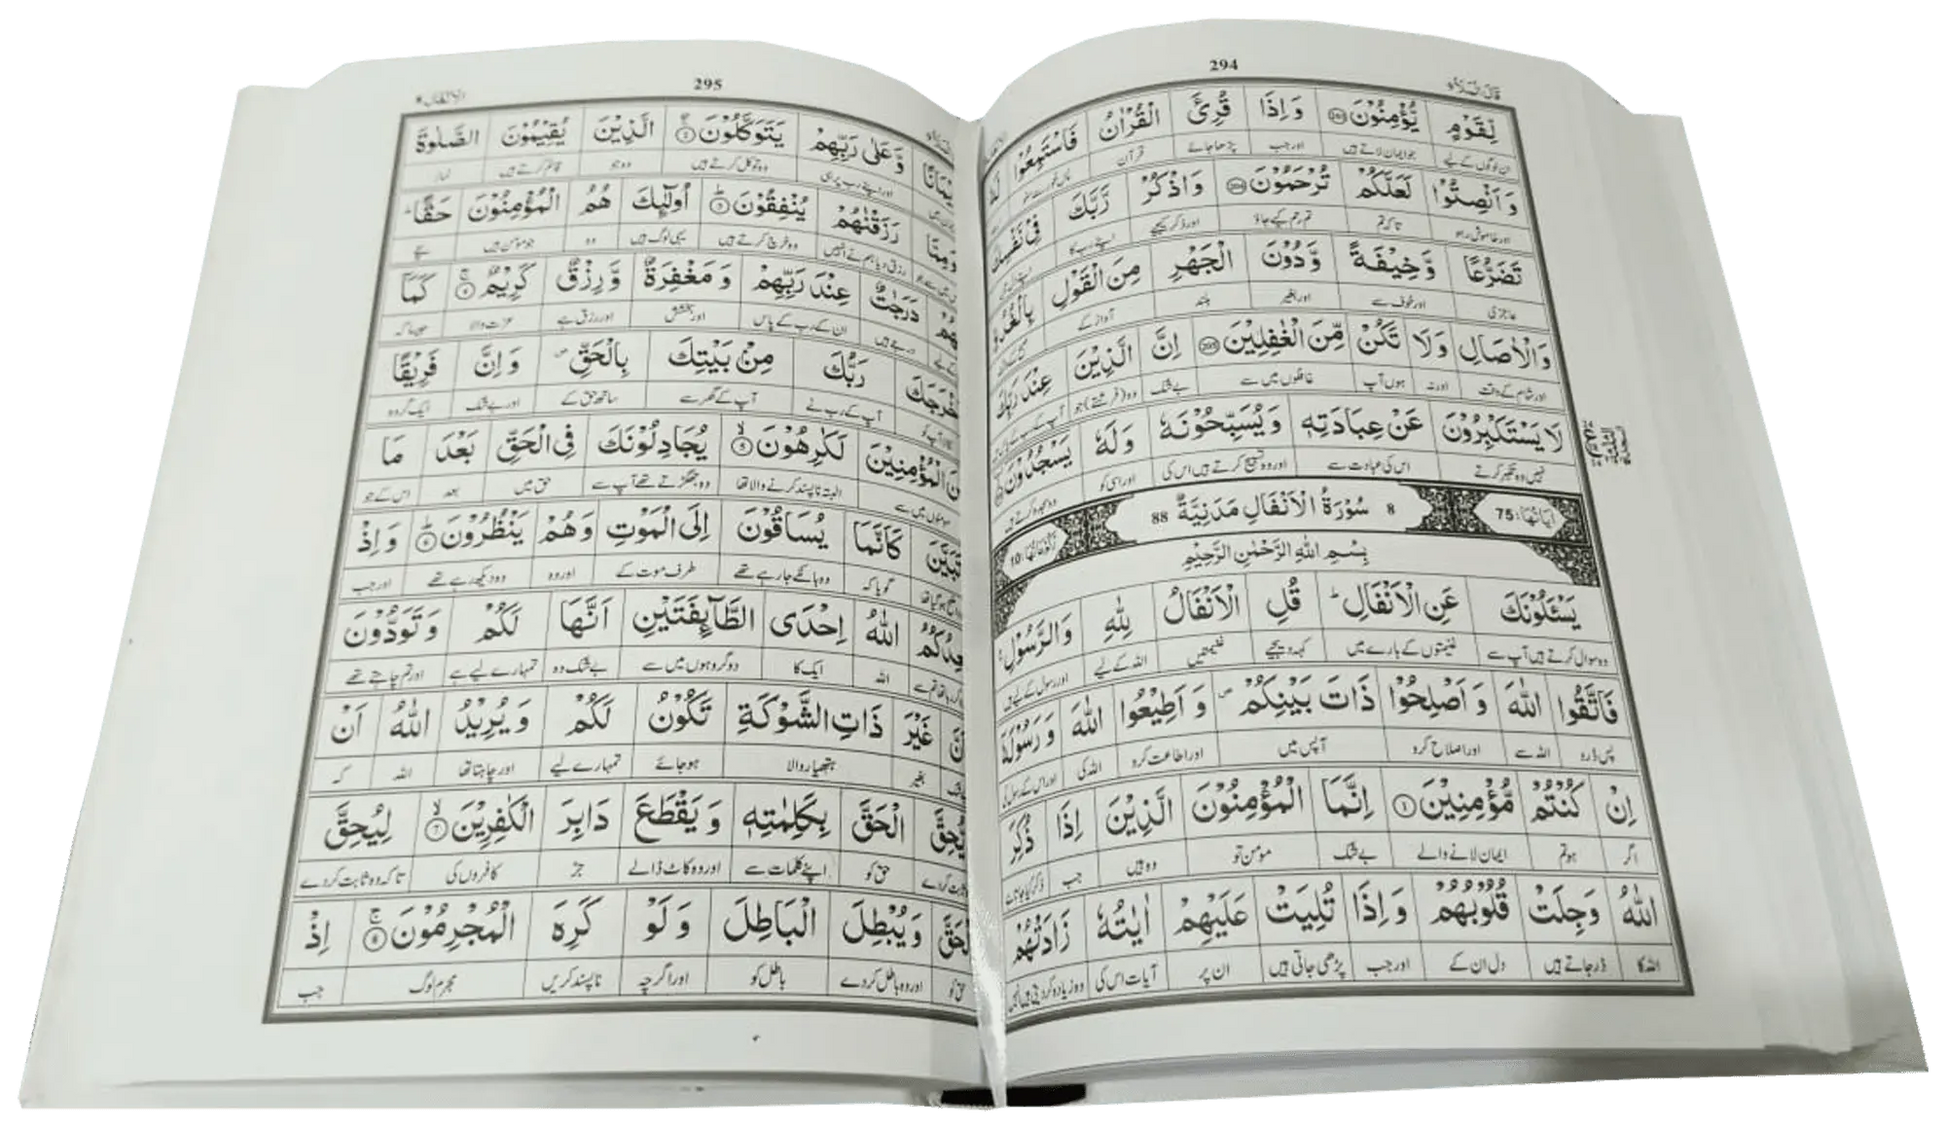 294
قَالَ الْمَلَاُ
لِّقَوْمٍ یُّؤْمِنُوْنَ وَاِذَا قُرِئَ الْقُرْاٰنُ فَاسْتَمِعُوْا
ان لوگوں کے لیے جو ایمان لاتے ہیں اور جب پڑھا جائے قرآن
وَاَنْصِتُوْا لَعَلَّكُمْ تُرْحَمُوْنَ 204 وَاذْكُرْ رَّبَّكَ فِیْ نَفْسِكَ
اور خاموش رہو تا کہ تم تم رحم کیے جاؤ اور ذکر کیجیے اپنے رب کا
تَضَرُّعًا وَّخِیْفَةً وَّدُوْنَ الْجَهْرِ مِنَ الْقَوْلِ بِالْغُدُوِّ
عاجزی اور خوف سے اور بغیر بلند آواز کے
وَالْاٰصَالِ وَلَا تَكُنْ مِّنَ الْغٰفِلِیْنَ 205 اِنَّ الَّذِیْنَ عِنْدَ رَبِّكَ
اور شام کے وقت اور نہ ہوں آپ غافلوں میں سے بے شک وہ (فرشتے) جو آپ کے رب کے پاس
لَا یَسْتَكْبِرُوْنَ عَنْ عِبَادَتِهٖ وَیُسَبِّحُوْنَهٗ وَلَهٗ یَسْجُدُوْنَ
نہیں وہ تکبر کرتے اس کی عبادت سے اور وہ تسبیح کرتے ہیں اس کی اور اسی کو وہ سجدہ کرتے ہیں
اٰیَاتُهَا: 75 8 سُوْرَةُ الْاَنْفَالِ مَدَنِیَّةٌ 88 رُكُوْعَاتُهَا: 10
بِسْمِ اللّٰهِ الرَّحْمٰنِ الرَّحِیْمِ
یَسْـَٔلُوْنَكَ عَنِ الْاَنْفَالِ ؕ قُلِ الْاَنْفَالُ لِلّٰهِ وَالرَّسُوْلِ ۚ
وہ سوال کرتے ہیں آپ سے غنیمتوں کے بارے میں کہہ دیجیے غنیمتیں اللہ کے لیے اور رسول کے لیے
فَاتَّقُوا اللّٰهَ وَاَصْلِحُوْا ذَاتَ بَیْنِكُمْ ۪ وَاَطِیْعُوا اللّٰهَ وَرَسُوْلَهٗۤ
پس ڈرو اللہ سے اور اصلاح کرو آپس میں اور اطاعت کرو اللہ کی اور اس کے رسول کی
اِنْ كُنْتُمْ مُّؤْمِنِیْنَ 1 اِنَّمَا الْمُؤْمِنُوْنَ الَّذِیْنَ اِذَا ذُكِرَ
اگر ہو تم ایمان لانے والے بے شک مومن تو وہ ہیں جب ذکر کیا جاتا ہے
اللّٰهُ وَجِلَتْ قُلُوْبُهُمْ وَاِذَا تُلِیَتْ عَلَیْهِمْ اٰیٰتُهٗ زَادَتْهُمْ
اللہ کا ڈر جاتے ہیں دل ان کے اور جب پڑھی جاتی ہیں ان پر آیات اس کی وہ زیادہ کر دیتی ہیں انہیں
295
الْاَنْفَال ۸
وَّعَلٰى رَبِّهِمْ یَتَوَكَّلُوْنَ 2 الَّذِیْنَ یُقِیْمُوْنَ الصَّلٰوةَ
اور اپنے رب پر ہی وہ توکل کرتے ہیں وہ جو قائم کرتے ہیں نماز
وَمِمَّا رَزَقْنٰهُمْ یُنْفِقُوْنَ ؕ 3 اُولٰٓىِٕكَ هُمُ الْمُؤْمِنُوْنَ حَقًّا ؕ
رزق دیا ہم نے انہیں وہ خرچ کرتے ہیں یہی لوگ ہیں وہ جو مومن ہیں سچے
لَهُمْ دَرَجٰتٌ عِنْدَ رَبِّهِمْ وَمَغْفِرَةٌ وَّرِزْقٌ كَرِیْمٌ ۚ 4 كَمَاۤ
درجے ہیں ان کے رب کے پاس اور بخشش اور رزق ہے عزت والا جیسا کہ
اَخْرَجَكَ رَبُّكَ مِنْۢ بَیْتِكَ بِالْحَقِّ ۪ وَاِنَّ فَرِیْقًا
آپ کے رب نے آپ کے گھر سے ساتھ حق کے اور بے شک ایک گروہ
مِّنَ الْمُؤْمِنِیْنَ لَكٰرِهُوْنَ ۙ 5 یُجَادِلُوْنَكَ فِی الْحَقِّ بَعْدَ مَا
مومنوں میں سے البتہ ناپسند کرنے والا تھا وہ جھگڑتے تھے آپ سے حق میں بعد اس کے جو
تَبَیَّنَ كَاَنَّمَا یُسَاقُوْنَ اِلَى الْمَوْتِ وَهُمْ یَنْظُرُوْنَ ؕ 6 وَاِذْ
گویا کہ وہ ہانکے جا رہے تھے طرف موت کے اور وہ وہ دیکھ رہے تھے اور جب
یَعِدُكُمُ اللّٰهُ اِحْدَى الطَّآىِٕفَتَیْنِ اَنَّهَا لَكُمْ وَتَوَدُّوْنَ
اللہ ایک کا دو گروہوں میں سے بے شک وہ تمہارے لیے ہے اور تم چاہتے تھے
اَنَّ غَیْرَ ذَاتِ الشَّوْكَةِ تَكُوْنُ لَكُمْ وَیُرِیْدُ اللّٰهُ اَنْ
بغیر ہتھیار والا ہو جائے تمہارے لیے اور چاہتا تھا اللہ کہ
یُّحِقَّ الْحَقَّ بِكَلِمٰتِهٖ وَیَقْطَعَ دَابِرَ الْكٰفِرِیْنَ ۙ 7 لِیُحِقَّ
حق کو اپنے کلمات سے اور وہ کاٹ ڈالے جڑ کافروں کی تا کہ وہ ثابت کر دے
الْحَقَّ وَیُبْطِلَ الْبَاطِلَ وَلَوْ كَرِهَ الْمُجْرِمُوْنَ ۚ 8 اِذْ
حق کو اور وہ باطل کر دے باطل کو اور اگرچہ ناپسند کریں مجرم لوگ جب